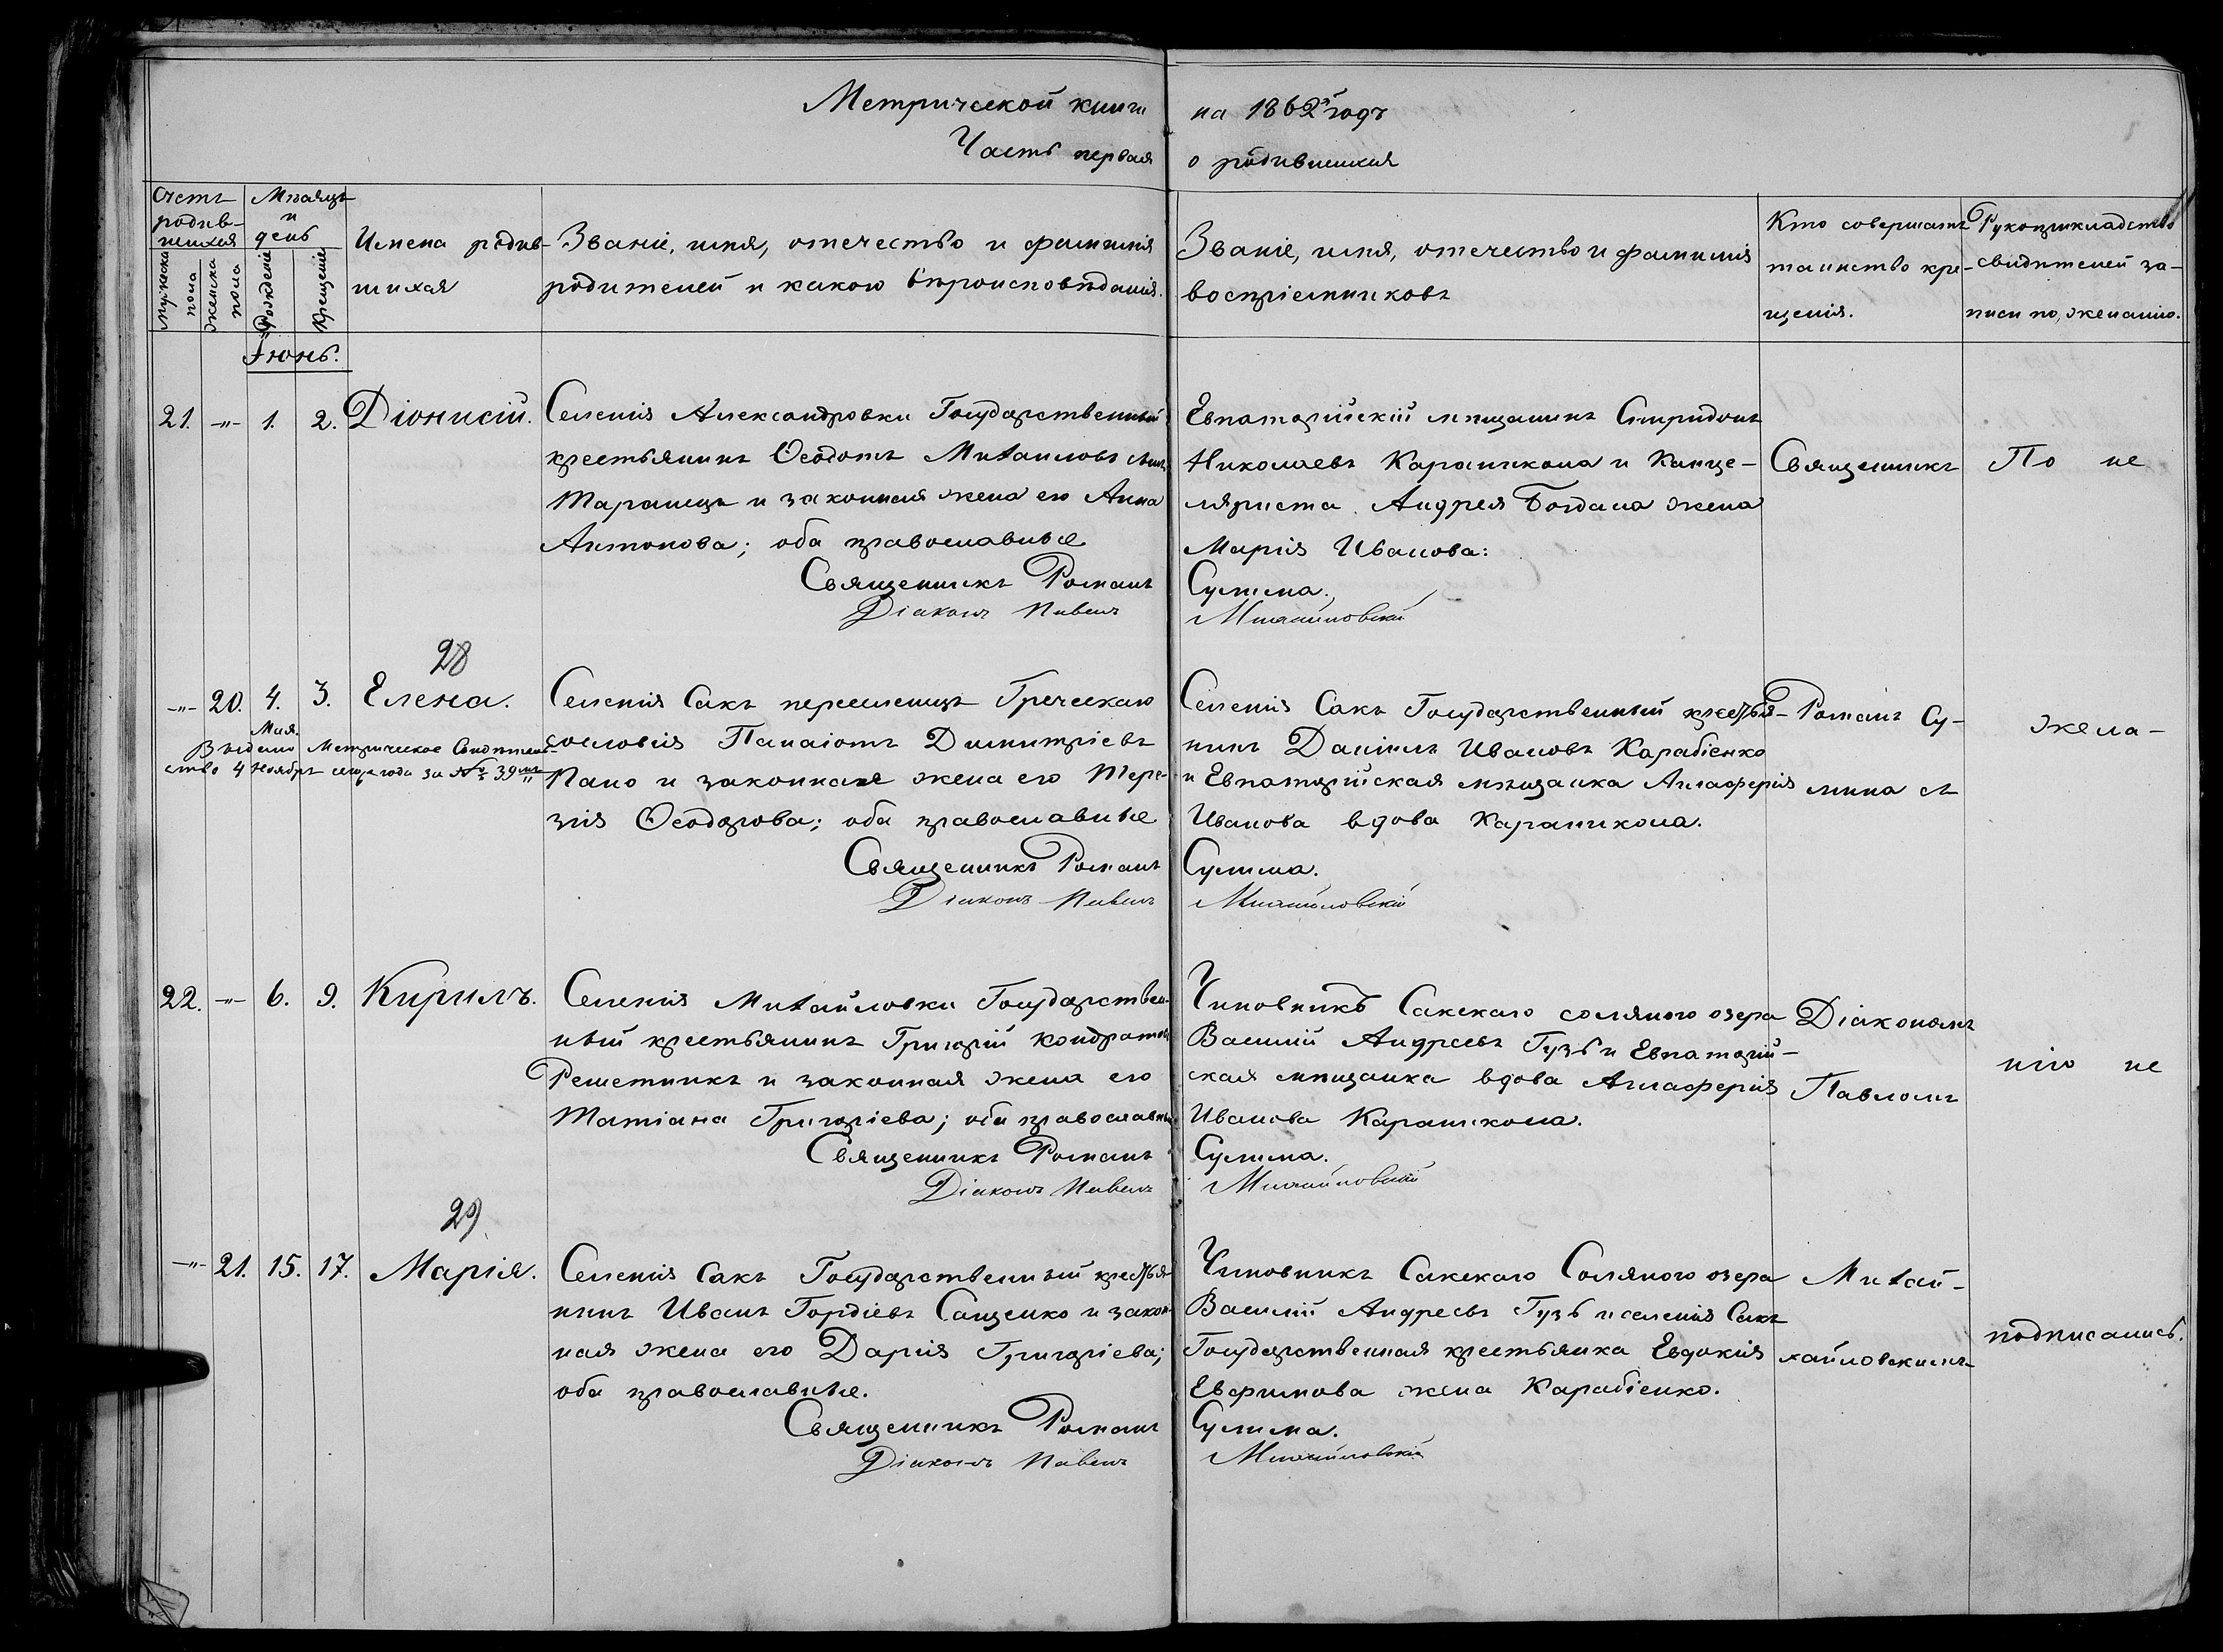 Метрической книги на 1862й годъ
Часть первая о родившихся
Счетъ родив-шихся
мужеска пола
женска пола
Мѣсяцъ и день
Рожденія
Крещенія
Имена родив-
шихся
Званіе, имя, отечество и фамилія
родителей и какого вѣроисповѣданія.
Званіе, имя, отечество и фамилія
воспріемниковъ
Кто совершалъ
таинство кре-
щенія.
Рукоприкладство
свидѣтелей за-
писи по желанію.
Іюнь.
21. -"- 1. 2. Діонисій.
Селенія Александровки Государственный
крестьянинъ Ѳеодотъ Михаиловъ сынъ
Таранецъ и законная жена его Анна
Антонова; оба православные
Священникъ Романъ
Діаконъ Павелъ
Евпаторійскій мѣщанинъ Спиридонъ
Николаевъ Караникола и Канце-
ляриста Андрея Богдана жена
Марія Иванова:
Сулима.
Михайловскій
Священникъ
По не
28
-"- 20. 4. 3. Елена.
Мая.
Выдано Метрическое Свидѣтель-
ство 4 Ноября сего года за № 39мъ
Селенія Сакъ переселенецъ Греческаго
сословія Панаіотъ Димитріевъ
Пано и законная жена его Тере-
зія Ѳеодорова; оба православные
Священникъ Романъ
Діаконъ Павелъ
Селенія Сакъ Государственный крестья-
нинъ Даніилъ Ивановъ Карабіенко
и Евпаторійская мѣщанка Аглаферія
Иванова вдова Караникола.
Сулима.
Михайловскій
Романъ Су-
лима съ
жела-
22. -"- 6. 9. Кирилъ.
Селенія Михайловки Государствен-
ный крестьянинъ Григорій Кондратовъ
Решетникъ и законная жена его
Татіана Григоріева; оба православные
Священникъ Романъ
Діаконъ Павелъ
Чиновникъ Сакскаго солянаго озера
Василій Андреевъ Гузь и Евпаторій-
ская мѣщанка вдова Аглаферія
Иванова Караникола.
Сулима.
Михайловскій
Діакономъ
Павломъ
нію не
29
-"- 21. 15. 17. Марія.
Селенія Сакъ Государственный крестья-
нинъ Иванъ Гордіевъ Сащенко и закон-
ная жена его Дарія Григоріева;
оба православные.
Священникъ Романъ
Діаконъ Павелъ
Чиновникъ Сакскаго Солянаго озера
Василій Андреевъ Гузь и селенія Сакъ
Государственная крестьянка Евдокія
Евфимова жена Карабіенко.
Сулима.
Михайловскій
Михай-
хайловскимъ
подписались.